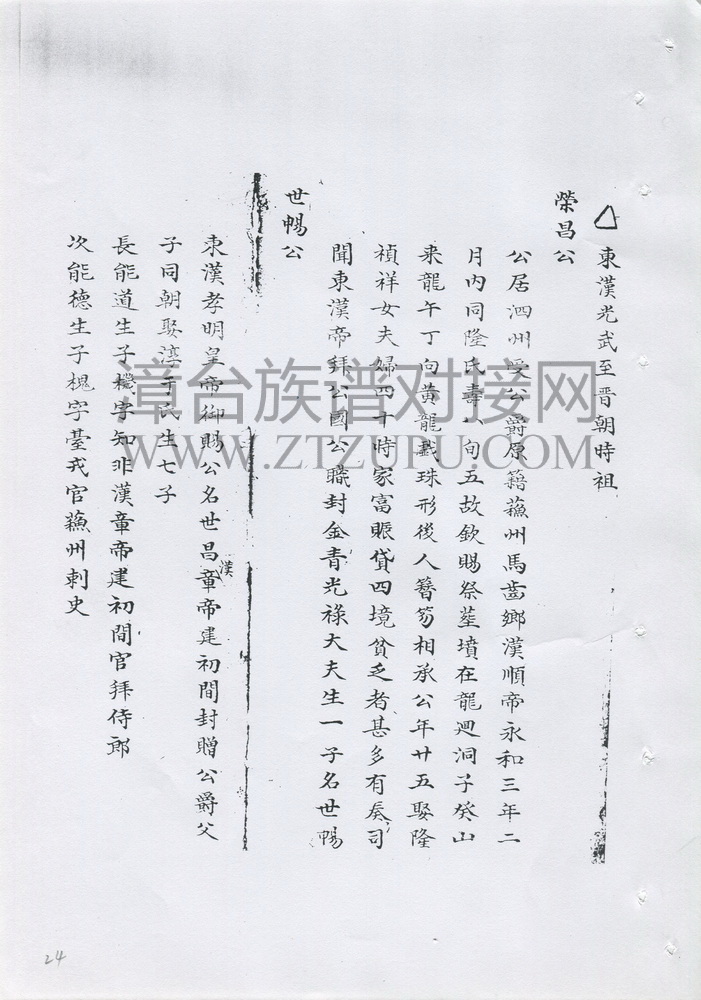 東漢光武至晋朝時祖
榮昌公
公居泗州受公爵原籍蘓州馬齒鄉漢順帝永和三年二
月内同隆氏壽八旬五故欽賜祭塟墳在龍廻洞子癸山
来龍午丁向黄龍戲珠形後人簪笏相承公年廿五娶隆
禎祥女夫婦四十時家富賑貸四境貧乏者甚多有奏司
聞東漢帝拜公國公職封金青光祿大夫生一子名世暢
世暢公
東漢孝明皇帝御賜公名世昌漢章帝建初間封贈公爵父
子同朝娶淳于氏生七子
長能道生子機字知非漢章帝建初間官拜侍郎
次能德生子槐字臺戎官蘓州刺史
漳台族谱对接网
WWW.ZTZUPU.COM
24